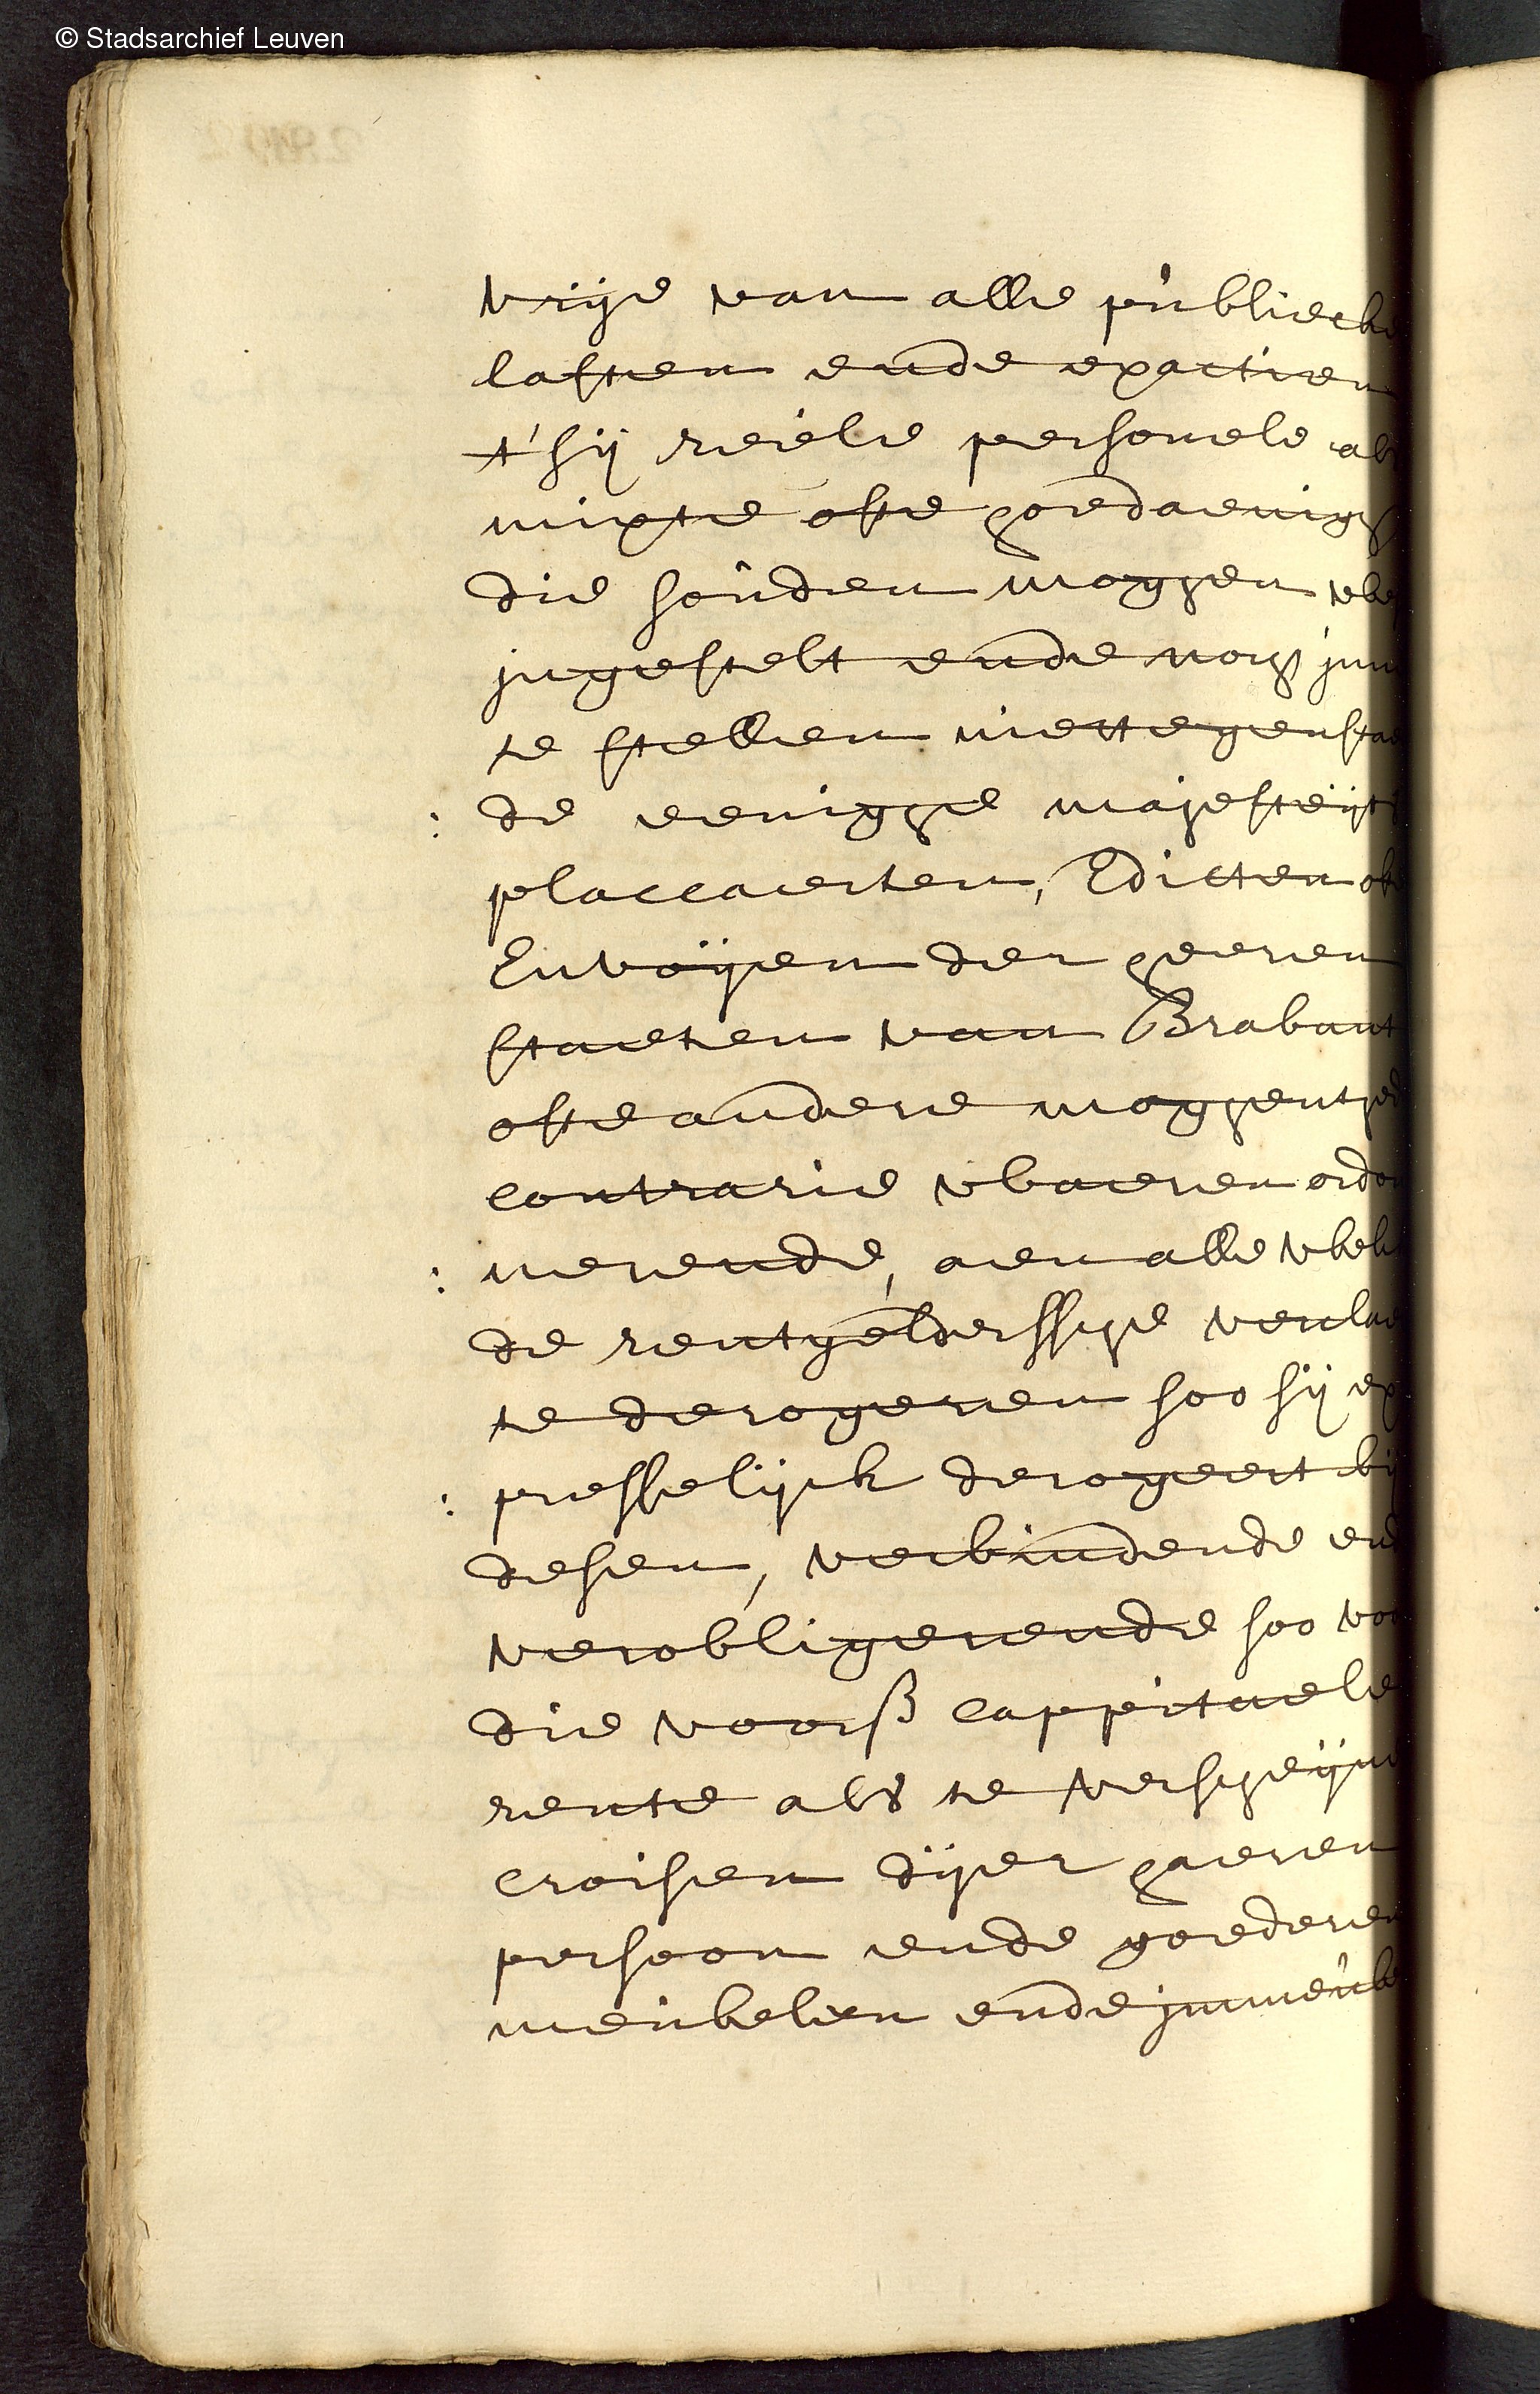 © Stadsarchief Leuven
vrije van alle publiecke
lasten ende exactien
t'sij reële personele
mixte ofte hoedaenigh
die souden moghen
jngestelt ende nogh
te stellen niettegenstaen
: de eenighe majesteijts
placcaerten, Edicten ofte
Envoijen der heeren
staeten van Brabant
ofte andere moghentheden
contrarie
: nerende, aen alle
de rentgelderssche
te derogeren soo sij ex
: presselijck derogeert bij
desen, verbindende ende
verobligerende soo voor
die voorß cappitaele
rente als te verscheijnen
croisen dijer haeren
persoon ende goederen
meubelen ende